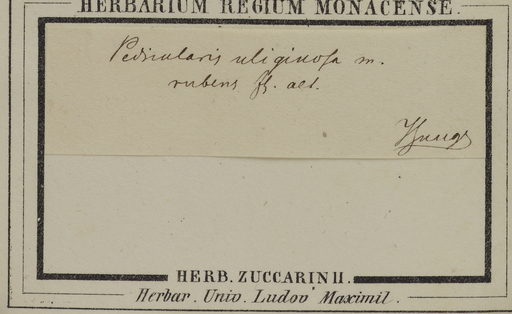 HERBARIUM REGIUM MONACENSE.
Pedicularis uliginosa m.
rubens fl. alt.
Bunge
HERB. ZUCCARINII.
Herbar. Univ. Ludov. Maximil.